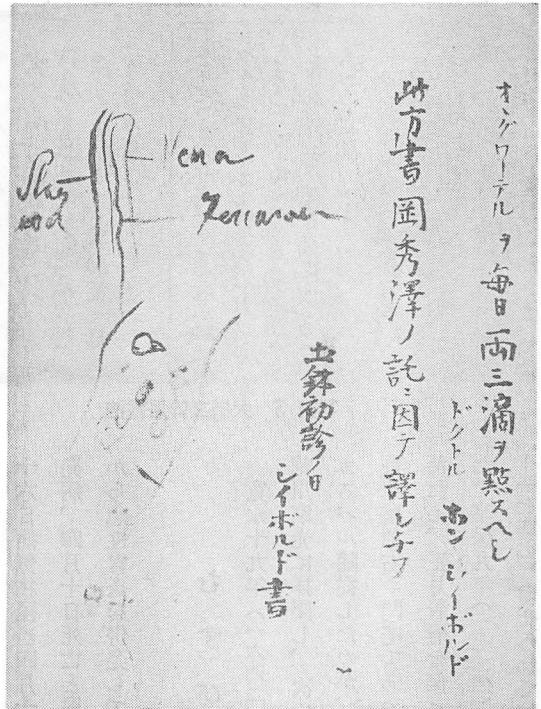 オヽグワーテル ヲ 毎日 一両三滴ヲ點スヘシ
ドクトル ホン シイボルド
此方書 岡秀澤ノ託ニ因テ 譯シ与フ
初診ノ日
シイボルド書
Vena